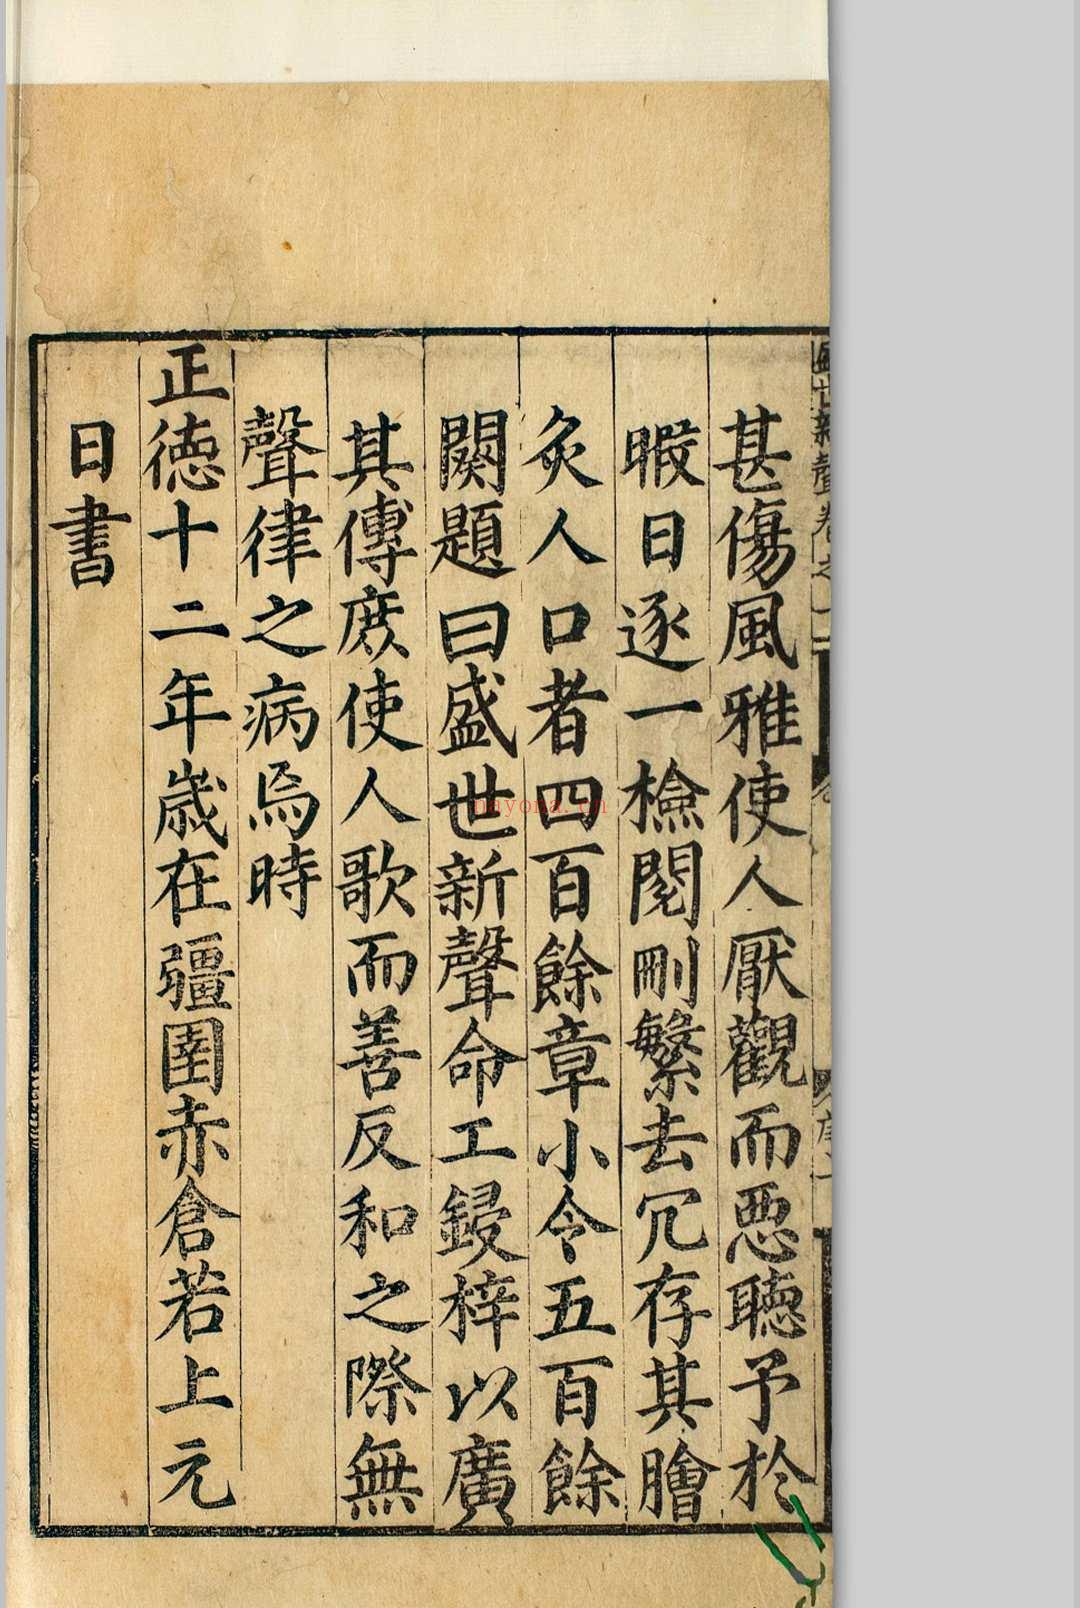 甚傷風雅使人厭觀而惡聽予於
暇日逐一檢閱刪繁去冗存其膾
炙人口者四百餘章小令五百餘
闋題曰盛世新聲命工鋟梓以廣
其傳庶使人歌而善反和之際無
聲律之病焉時
正德十二年歲在疆圉赤倉若上元
日書
nayona.cn